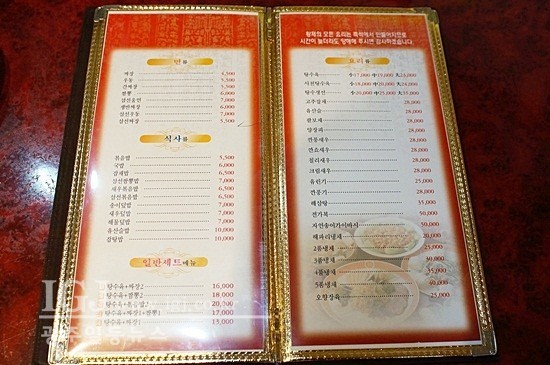 면 류
짜장 4,500
우동 5,000
간짜장 5,500
짬뽕 5,500
삼선울면 7,000
쟁반짜장 6,000
삼선우동 7,000
삼선짜장 5,500
식사 류
볶음밥 5,500
국밥 6,000
잡채밥 6,500
삼선짬뽕밥 7,500
새우볶음밥 6,500
삼선볶음밥 7,500
송이덮밥 7,500
새우덮밥 7,000
해물덮밥 7,000
유산슬밥 10,000
잡탕밥 10,000
일반세트 메뉴
탕수육+짜장2 16,000
탕수육+짬뽕2 18,000
탕수육+볶음밥2 20,500
탕수육+짜장1+짬뽕1 17,000
탕수육+짜장1 13,000
황제의 모든 요리는 즉석에서 만들어지므로
시간이 늦더라도 양해해 주시면 감사하겠습니다.
요리 류
탕수육 小17,000 中19,000 大24,000
사천탕수육 小18,000 中20,000 大24,000
탕수생선 小20,000 中25,000 大35,000
고추잡채 28,000
유산슬 28,000
팔보채 28,000
양장피 28,000
깐풍새우 28,000
깐쇼새우 28,000
칠리새우 28,000
크림새우 28,000
유린기 25,000
깐풍기 25,000
해삼탕 35,000
전가복 50,000
자연송이가이바시 50,000
해파리냉채 20,000
2품냉채 25,000
3품냉채 30,000
4품냉채 35,000
5품냉채 40,000
오향장육 25,000
광주역동뉴스